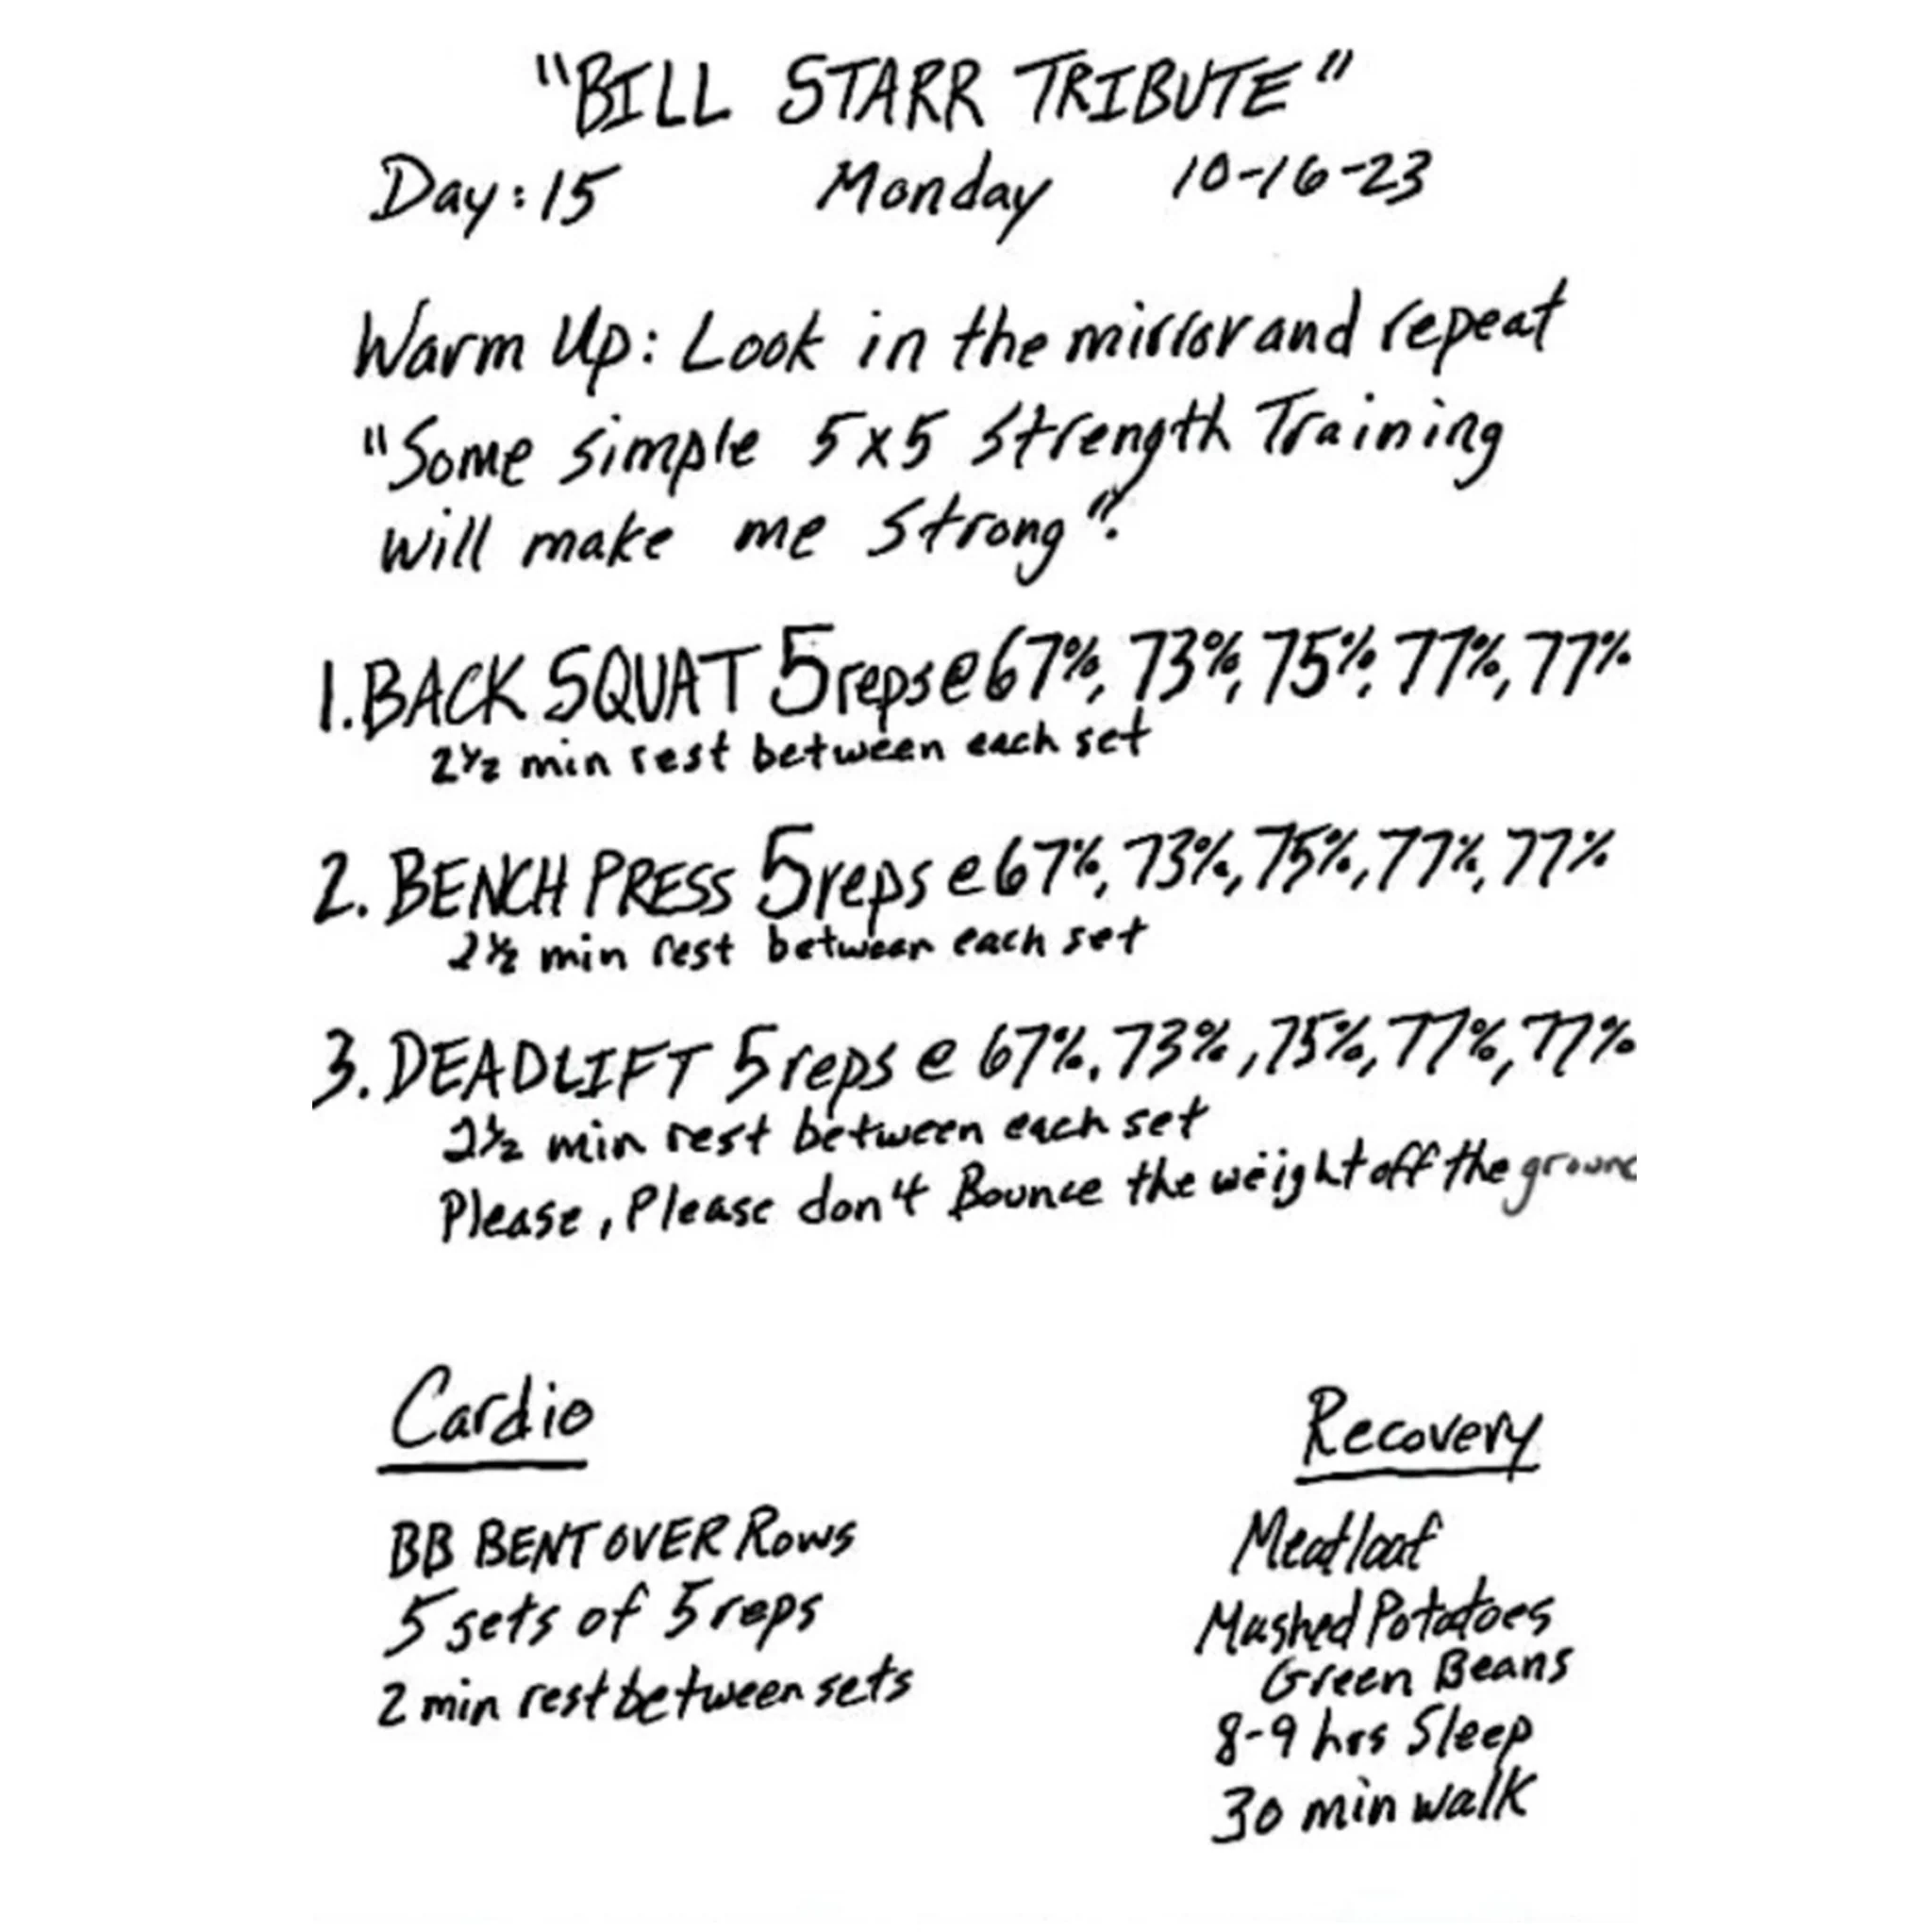 "BILL STARR TRIBUTE"
Day: 15 Monday 10-16-23
Warm Up: Look in the mirror and repeat
"Some simple 5x5 Strength Training
will make me strong".
1. BACK SQUAT 5 reps @ 67%, 73%, 75%, 77%, 77%
2½ min rest between each set
2. BENCH PRESS 5 reps @ 67%, 73%, 75%, 77%, 77%
2½ min rest between each set
3. DEADLIFT 5 reps @ 67%, 73%, 75%, 77%, 77%
2½ min rest between each set
Please, Please don't Bounce the weight off the ground
Cardio
BB BENT OVER Rows
5 sets of 5 reps
2 min rest between sets
Recovery
Meatloaf
Mashed Potatoes
Green Beans
8-9 hrs Sleep
30 min walk